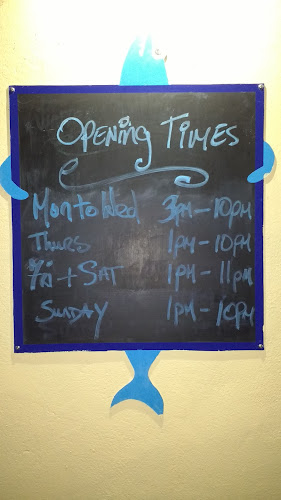 OPENING TIMES
Mon to Wed 3PM - 10PM
Thurs 1PM - 10PM
Fri + SAT 1PM - 11PM
SUNDAY 1PM - 10PM